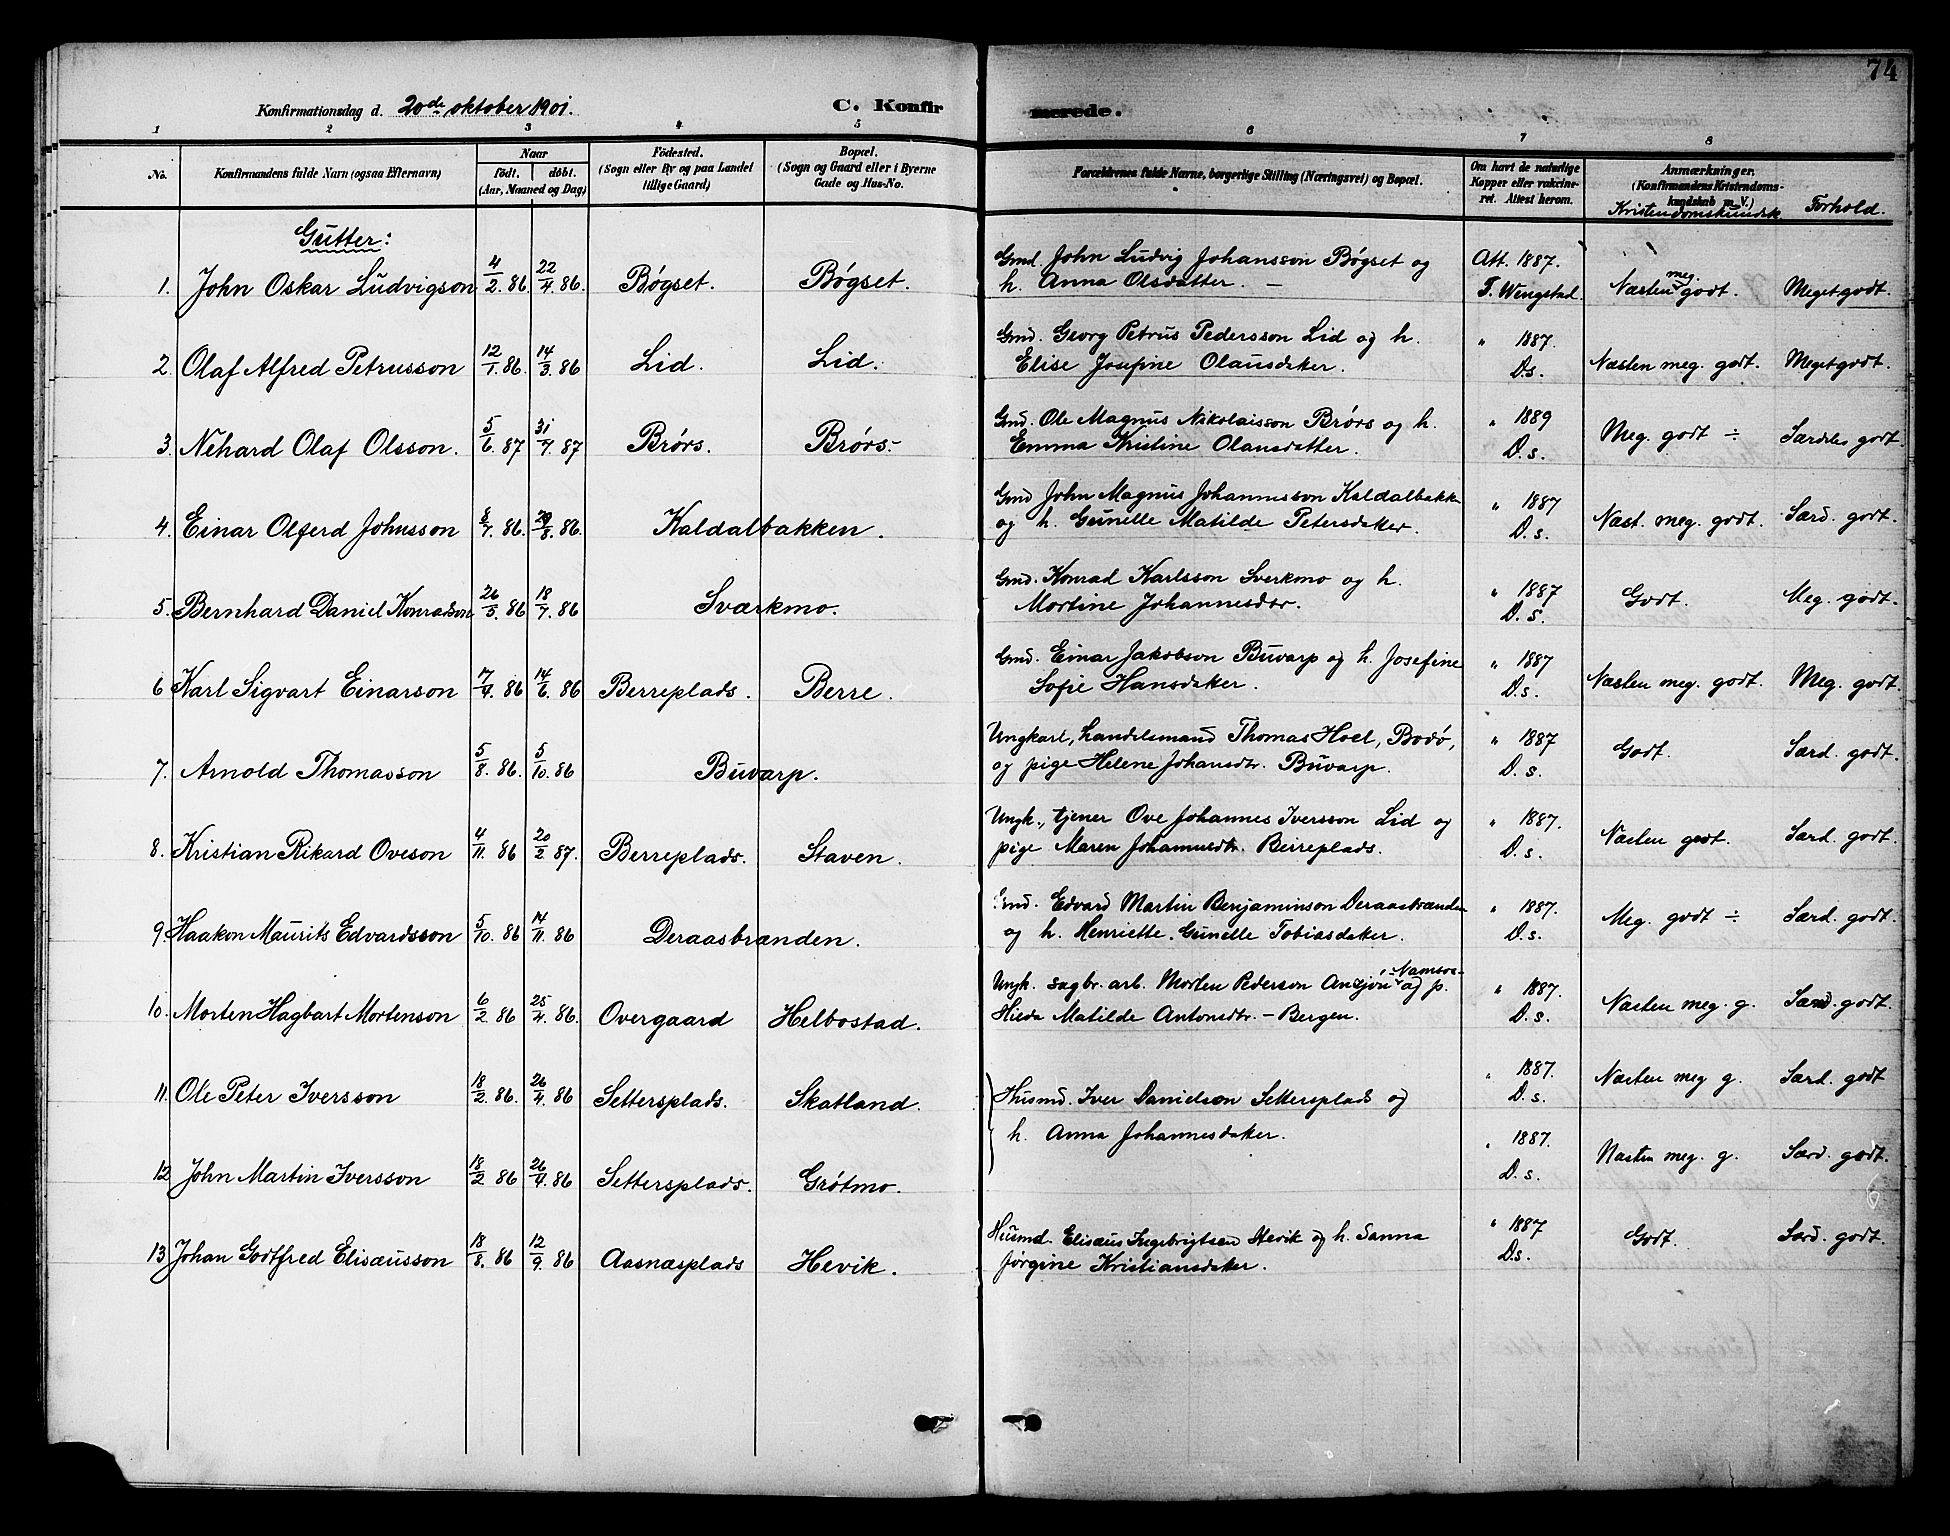 74
Konfirmationsdag d. 20de oktober 1901.
C. Konfirmerede.
1 2 3 4 5 6 7 8
No.
Konfirmandens fulde Navn (ogsaa Efternavn)
Naar
födt. döbt.
(Aar, Maaned og Dag)
Födested.
(Sogn eller By og paa Landet
tillige Gaard)
Bopæl.
(Sogn og Gaard eller i Byerne
Gade og Hus-No.
Forældrenes fulde Navne, borgerlige Stilling (Næringsvei) og Bopæl.
Om havt de naturlige
Kopper eller vakcineret. Attest herom.
Anmærkninger.
(Konfirmandens Kristendoms-
kundskab m. V.)
Kristendomskundsk Forhold.
Gutter:
1. John Oskar Ludvigson 4/2. 86. 22/4. 86. Bøgset. Bøgset.
Gmd. John Ludvig Johansson Bøgset og
h. Anna Olsdatter. –
Att. 1887.
T. Wengstad.
Næsten meg. godt. Meget godt.
2. Olaf Alfred Petrusson 12/1. 86. 14/3. 86 Lid. Lid.
Gmd. Georg Petrus Pedersson Lid og h.
Elise Josefine Olausdatter.
" 1887.
D.s.
Næsten meg. godt. Meget godt.
3. Nehard Olaf Olsson. 5/6. 87 31/7. 87 Brørs. Brørs.
Gmd. Ole Magnus Nikolaisson Brørs og h.
Emma Kristine Olausdatter.
" 1889
D. s.
Meg. godt ÷ Særdeles godt.
4. Einar Olferd Johnsson 8/7. 86. 29/8. 86. Kaldalbakken.
Gmd John Magnus Johannesson Kaldalbakk
og h. Gunelle Matilde Petersdatter.
" 1887
D. s.
Næst. meg. godt. Særd. godt.
5. Bernhard Daniel Konradson 26/5. 86 18/7. 86 Sværkmo.
Gmd. Konrad Karlsson Sverkmo og h.
Mortine Johannesdtr.
" 1887
D. s.
Godt. Meg. godt.
6 Karl Sigvart Einarson 7/4. 86 14/6. 86 Berreplads. Berre.
Gmd. Einar Jakobson Buvarp og h. Josefine
Sofie Hansdatter.
" 1887
D. s.
Næsten meg. godt. Meg. godt.
7. Arnold Thomasson 5/8. 86. 5/10. 86 Buvarp.
Ungkarl, handelsmand Thomas Hoel, Bodø,
og pige Helene Johansdtr. Buvarp.
" 1887
D. s.
Godt. Særd. godt.
8. Kristian Rikard Oveson 4/11. 86 20/2. 87. Berreplads. Staven.
Ungk., tjener Ove Johannes Iversson Lid og
pige Maren Johannesdtr. Berreplads.
" 1887.
D. s.
Næsten godt. Særd. godt.
9. Haakon Maurits Edvardsson 5/10. 86 14/11. 86 Deraasbranden.
Gmd. Edvard Martin Benjaminson Deraasbranden
og h. Henriette Gunelle Tobiasdatter.
" 1887.
D. s.
Meg. godt ÷ Særd. godt.
10. Morten Hagbart Mortenson 6/2. 86 25/4. 86. Overgaard Helbostad.
Ungk. sagbr. arb. Morten Pederson Ansjøn -Namsos- og p.
Hilda Matilde Antonsdtr. – Bergen.
" 1887.
D. s.
Næsten meg. g. Særd. godt.
11. Ole Peter Iversson 18/2. 86. 26/4. 86 Settersplads. Skatland.
Husmd. Iver Danielson Settersplads og
h. Anna Johannesdatter.
" 1887.
D. s.
Næsten meg g. Særd. godt
12 John Martin Iversson 18/2. 86 26/4. 86 Settersplads. Grøtmo.
" 1887.
D. s.
Næsten meg. g. Særd. godt.
13 Johan Godtfred Elisæusson 18/8. 86 12/9. 86 Aasnæsplads Hevik.
Husmd. Elisæus Ingebrigtsen Hevik og h. Sanna
Jørgine Kristiansdatter.
" 1887
D.s.
Godt. Særd. godt.